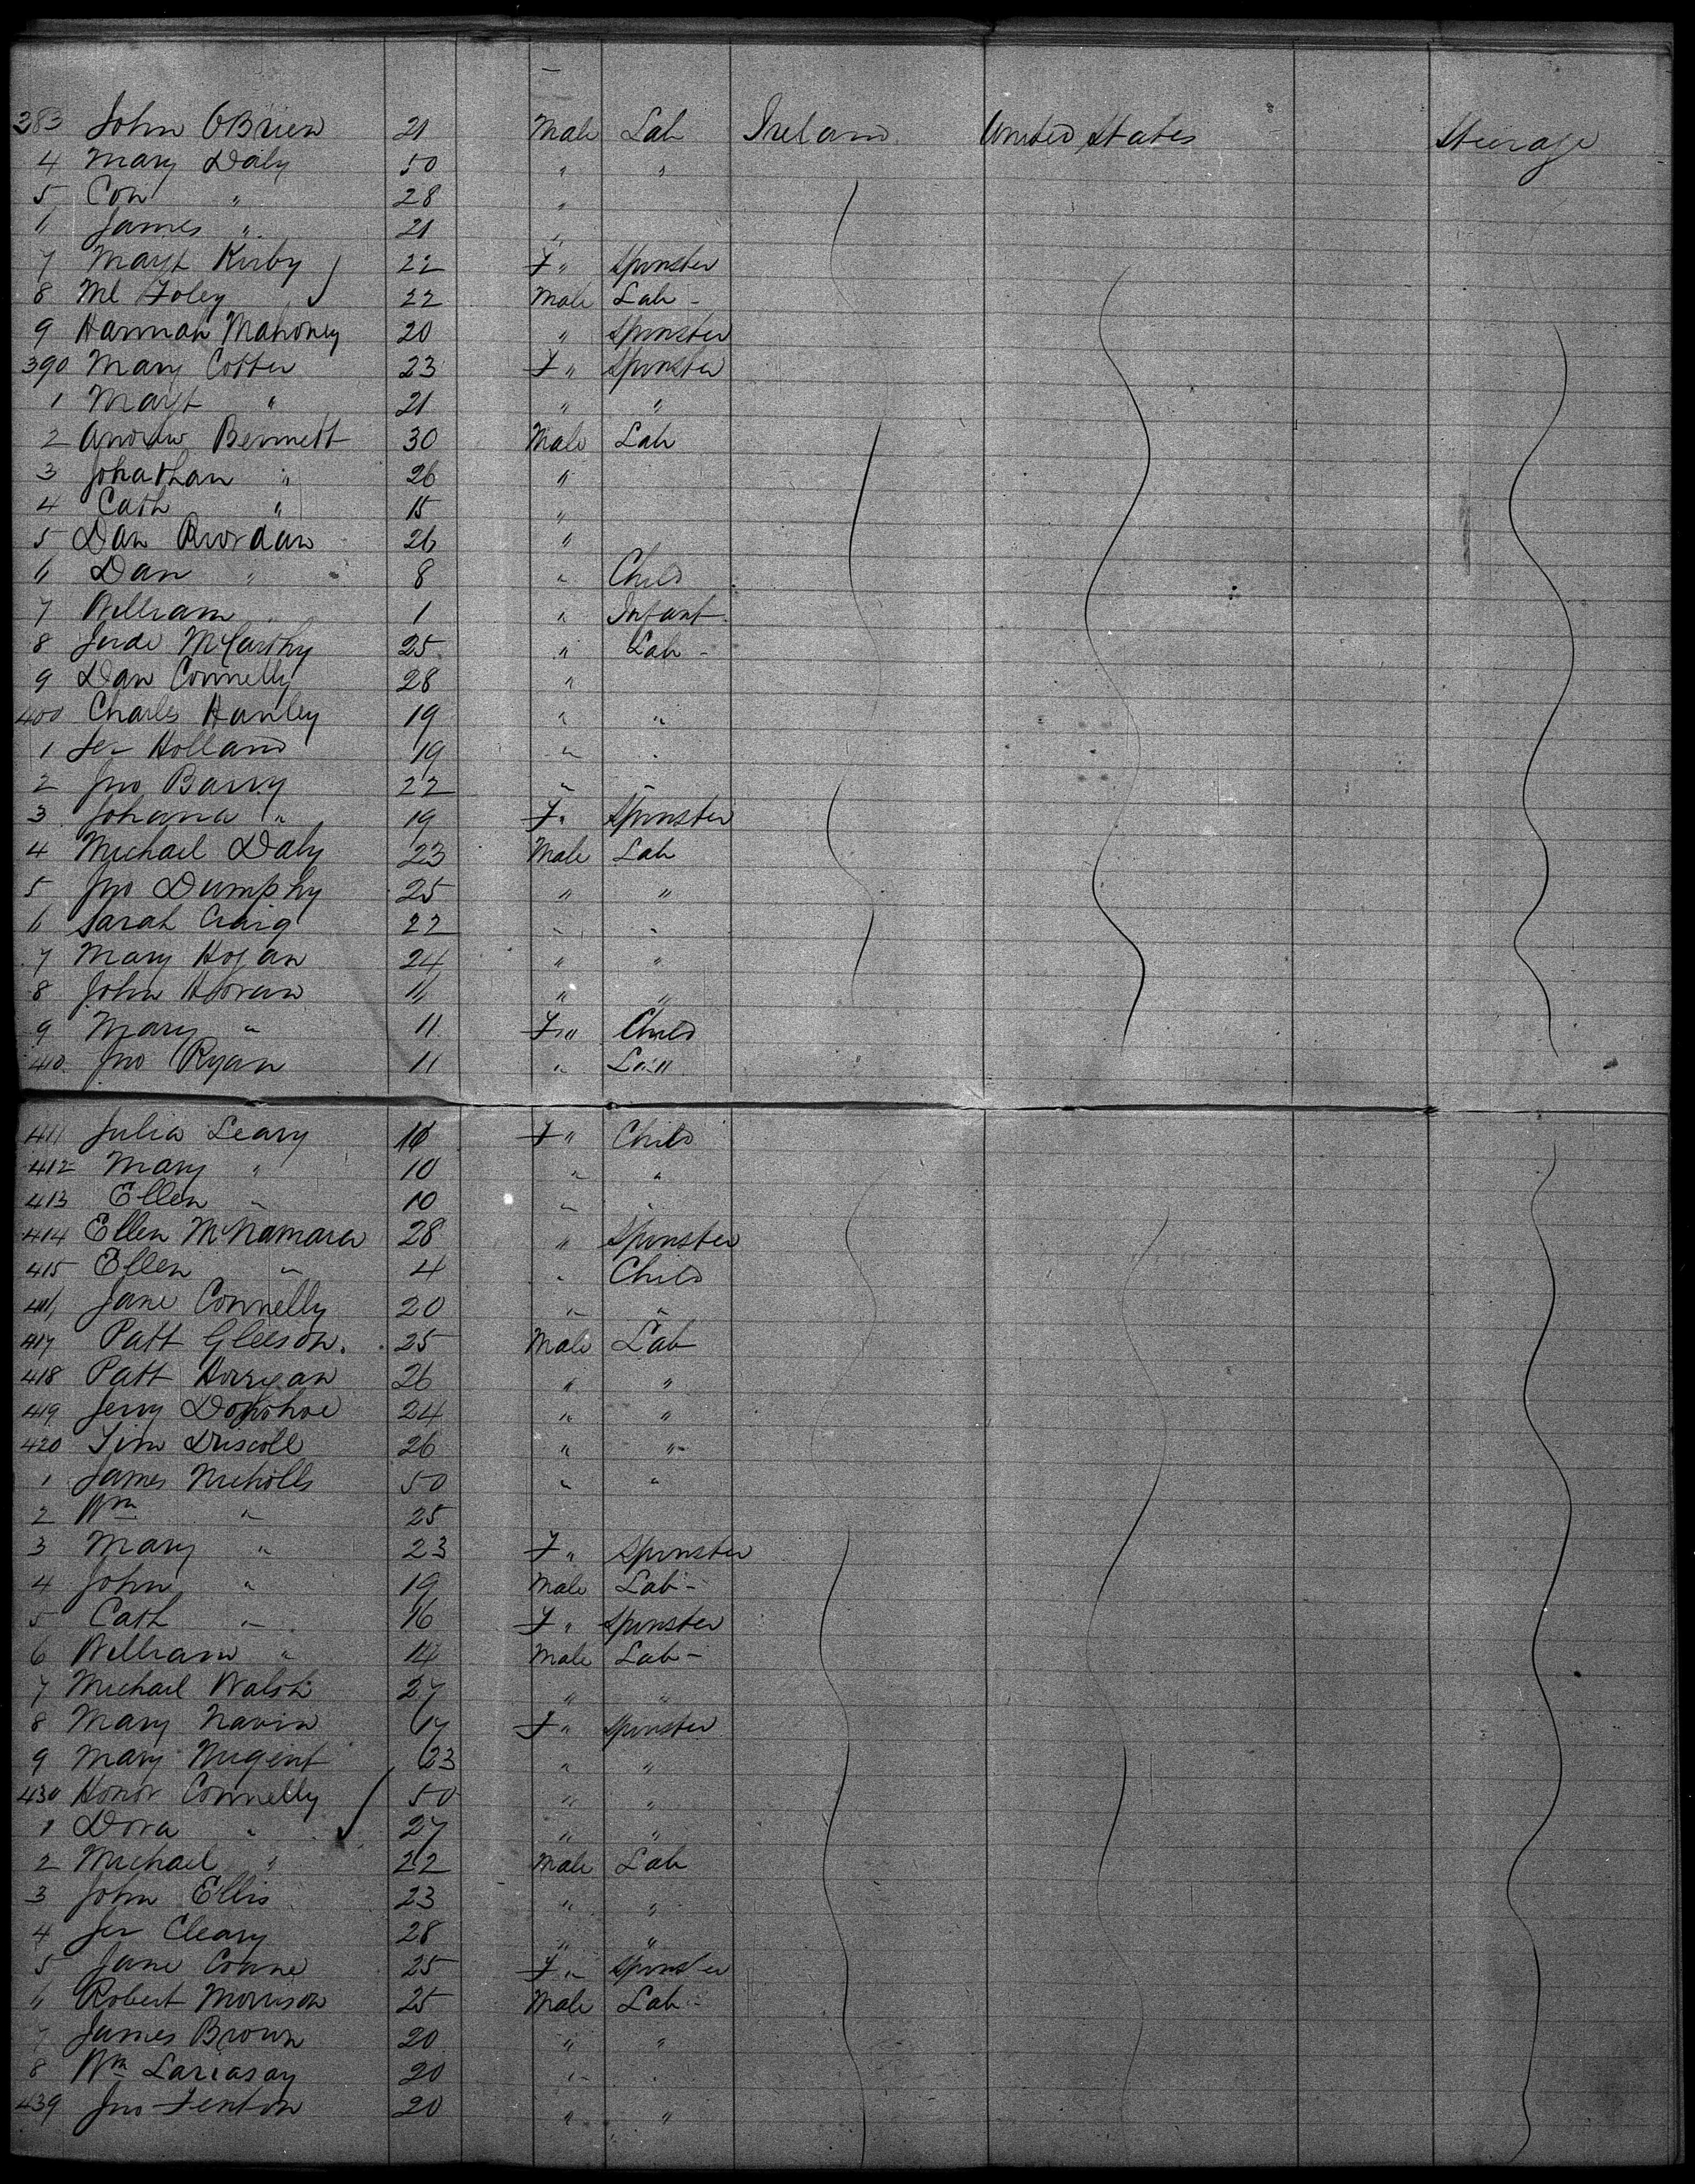 383 John OBrien 21 Male Lab Ireland United States Steerage
4 Mary Daly 50 " "
5 Con " 28 "
6 James " 21 "
7 Margt Kirby 22 F " Spinster
8 Ml Foley 22 Male Lab -
9 Hannah Mahoney 20 " Spinster
390 Mary Cotter 23 F " Spinster
1 Margt " 21 " "
2 Andrew Bennett 30 Male Lab
3 Johathan " 26 "
4 Cath " 15 "
5 Dan Riordan 26 "
6 Dan " 8 " Child
7 William " 1 " Infant
8 Jerde McCarthy 25 " Lab -
9 Dan Connelly 28 "
400 Charles Hanley 19 " "
1 Jer Holland 19 " "
2 Jno Barry 22 " "
3 Johana " 19 F " Spinster
4 Michael Daly 23 Male Lab
5 Jno Dumphy 25 " "
6 Sarah Craig 22 " "
7 Mary Hogan 24 " "
8 John Horan 11 " "
9 Mary " 11 F " Child
410 Jno Ryan 11 "
411 Julia Leary F " Child
412 Mary " 10 " "
413 Ellen " 10 " "
414 Ellen McNamara 28 " Spinster
415 Ellen " 4 " Child
416 Jane Connelly 20 " "
417 Patt Gleeson. 25 Male Lab
418 Patt Horrgan 26 " "
419 Jerry Donohoe 24 " "
420 Tim Driscoll 26 " "
1 James Nicholls 50 " "
2 Wm " 25
3 Mary " 23 F " Spinster
4 John " 19 Male Lab -
5 Cath " 16 F " Spinster
6 William " 14 Male Lab -
7 Michael Walsh 27 " "
8 Mary Navin 17 F " Spinster
9 Mary Nugent 23 " "
430 Honor Connelly 50 " "
1 Dora " 27 " "
2 Michael " 22 Male Lab
3 John Ellis 23 " "
4 Jer Cleary 28 " "
5 Jane Conne 25 F " Spinster
6 Robert Morrison 25 Male Lab -
7 James Brown 20 " "
8 Wm 20 " "
439 Jno Fenton 20 " "